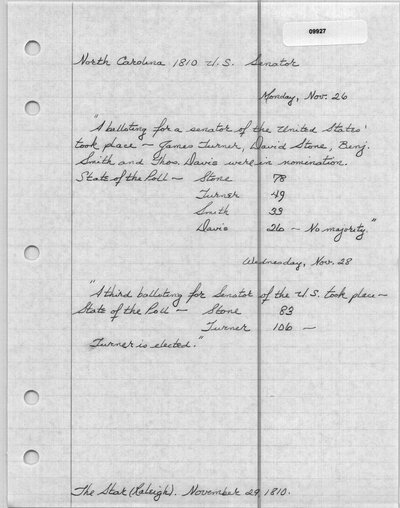 09927
North Carolina 1810 U.S. Senator
Monday, Nov. 26
"A balloting for a senator of the United States'
took place — James Turner, David Stone, Benj.
Smith and Thos. Davis were in nomination.
State of the Poll — Stone 78
Turner 49
Smith 33
Davis 26 — No majority."
Wednesday, Nov. 28
"A third balloting for Senator of the U.S. took place —
State of the Poll — Stone 83
Turner 106 —
Turner is elected."
The Star (Raleigh). November 29, 1810.